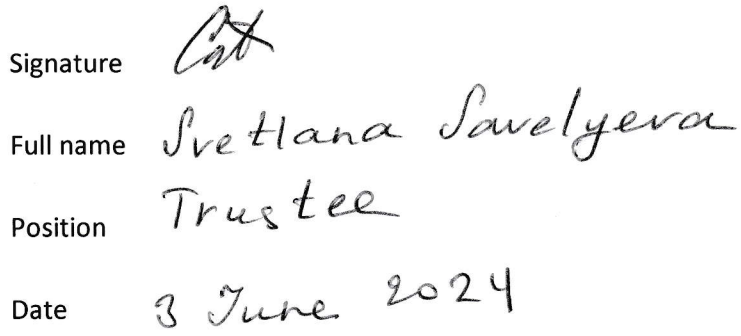 Signature
Full name Svetlana Savelyeva
Position Trustee
Date 3 June 2024